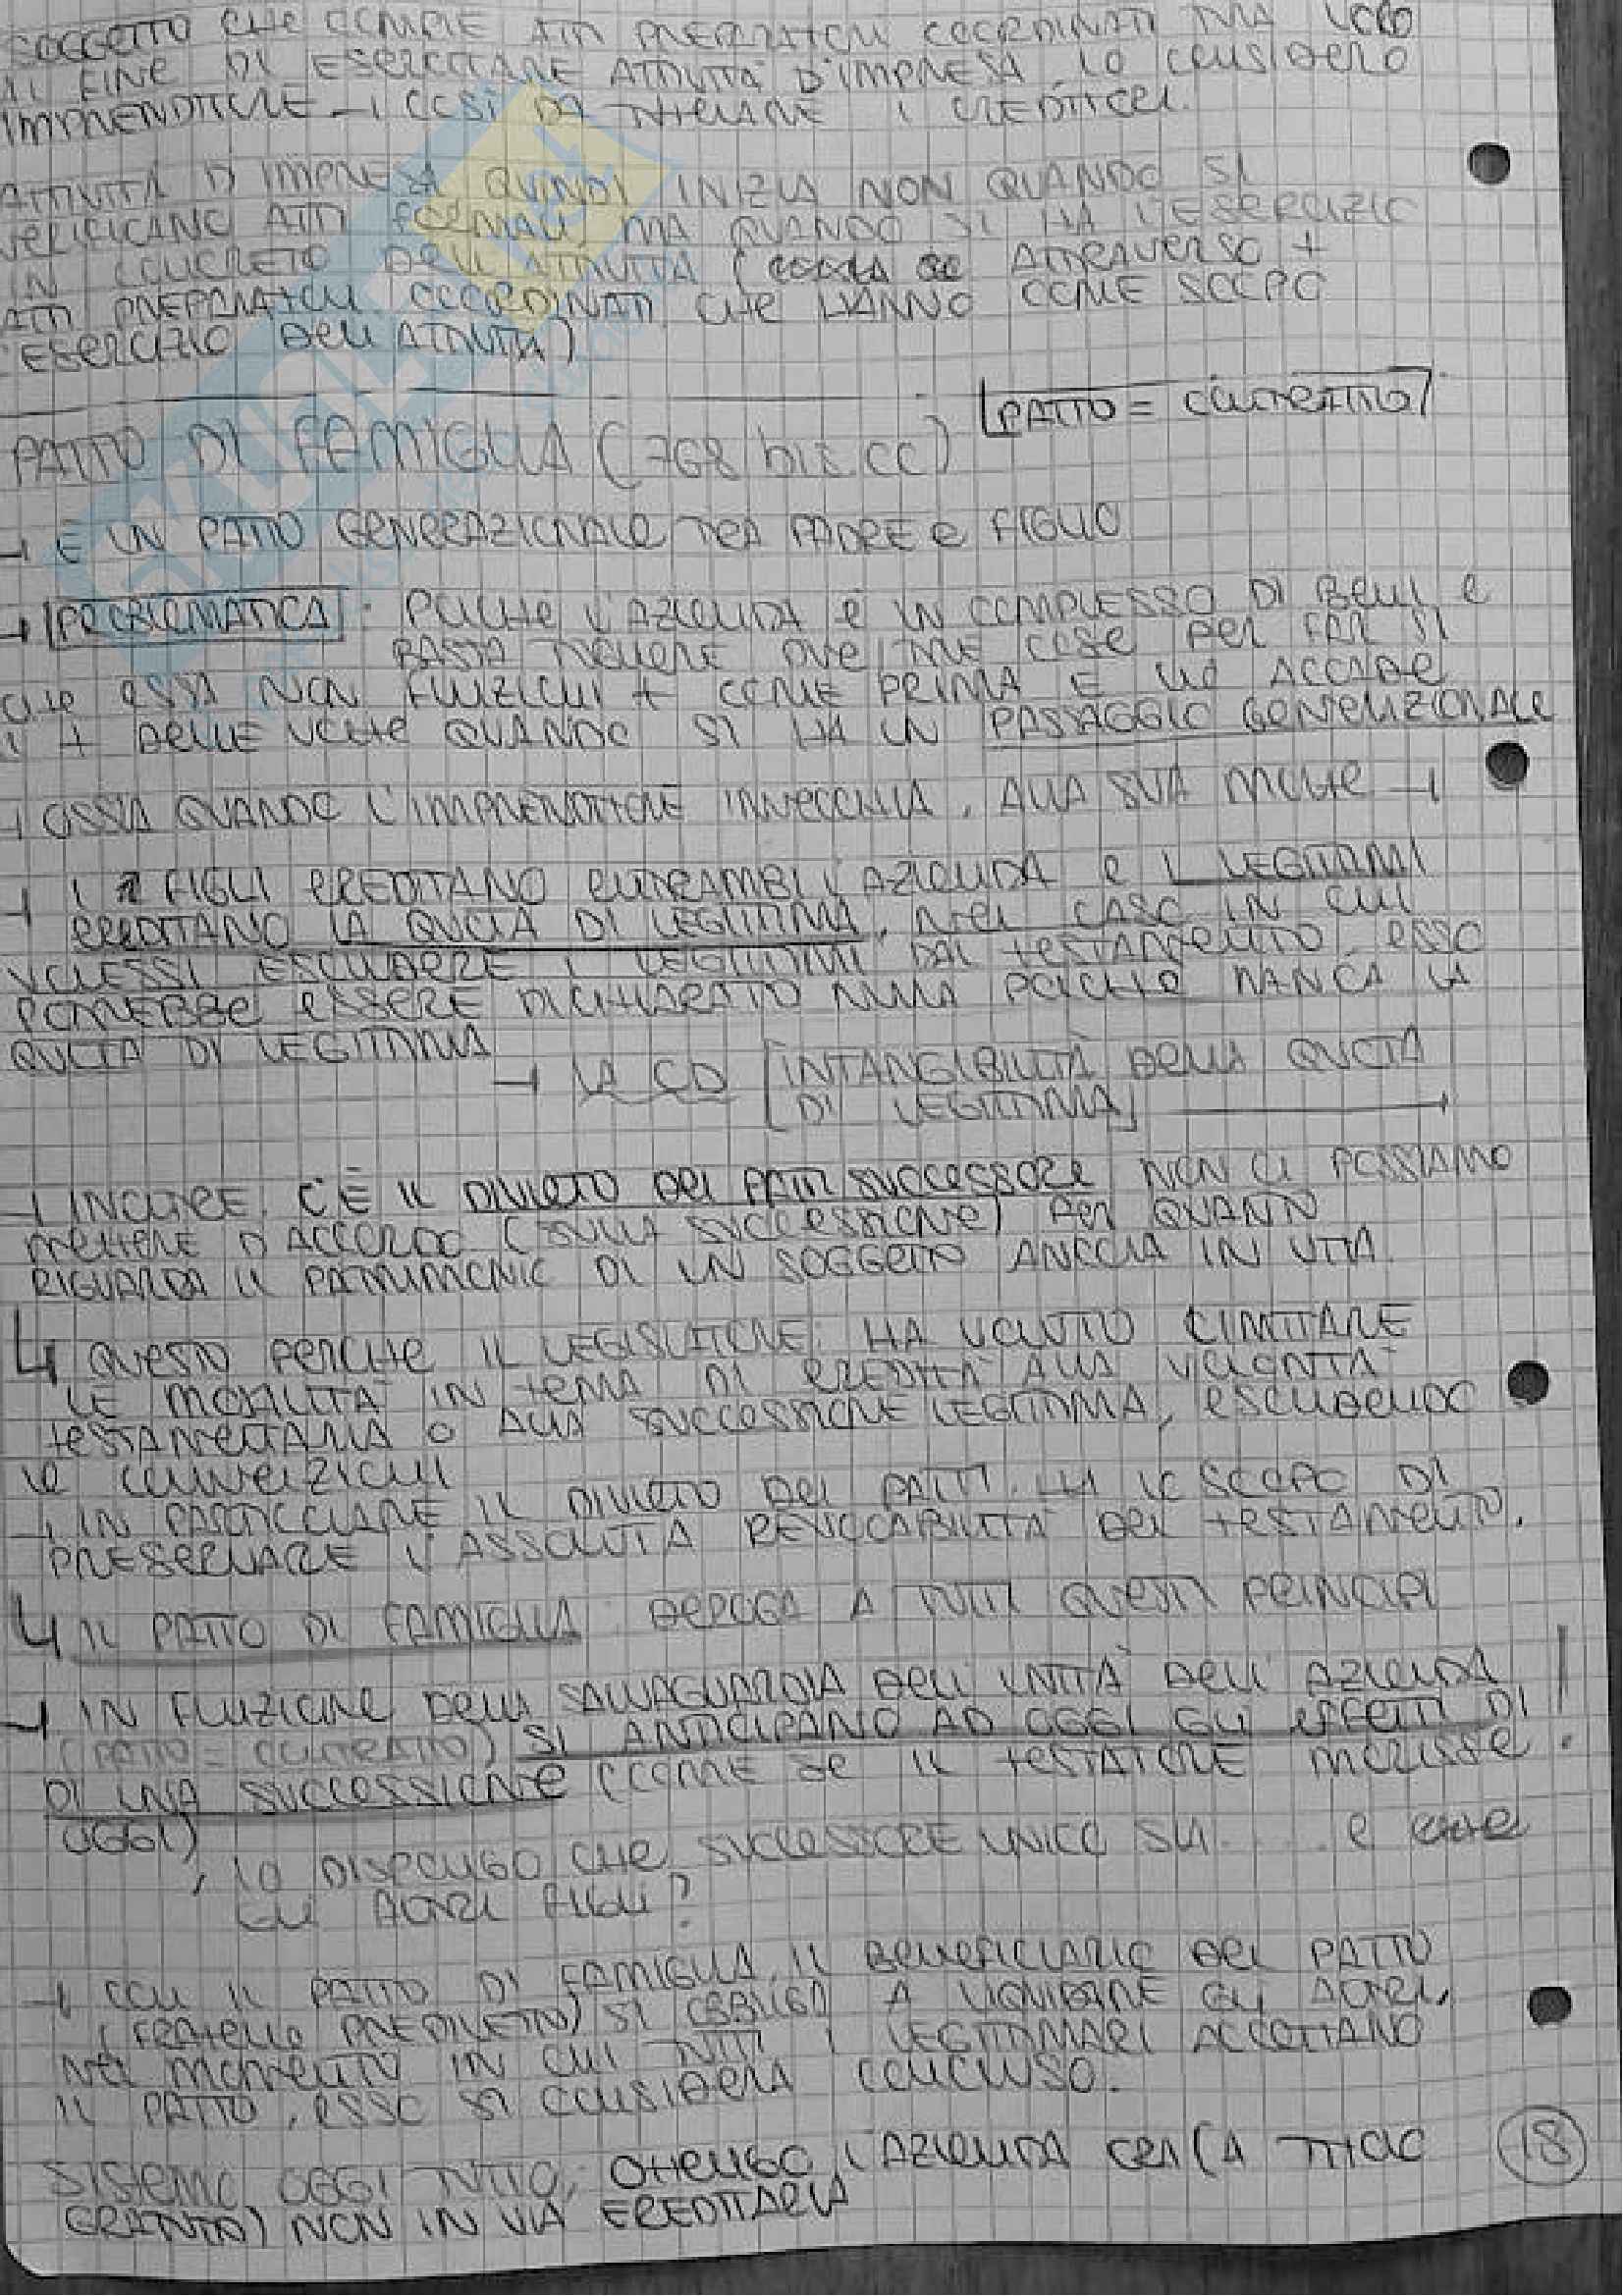 SOGGETTO CHE COMPIE ATTI PREPARATORI COORDINATI MA
IL FINE DI ESERCITARE ATTIVITÀ D'IMPRESA, LO CONSIDERO
IMPRENDITORE → COSÌ DA TUTELARE I CREDITORI.
ATTIVITÀ D'IMPRESA QUINDI INIZIA NON QUANDO SI
VERIFICANO ATTI FORMALI, MA QUANDO SI HA L'ESERCIZIO
IN CONCRETO DELL'ATTIVITÀ ( ATTRAVERSO +
ATTI PREPARATORI COORDINATI CHE HANNO COME SCOPO
L'ESERCIZIO DELL'ATTIVITÀ)
[PATTO = CONTRATTO]
PATTO DI FAMIGLIA (768 bis CC)
→ È UN PATTO GENERAZIONALE TRA PADRE e FIGLIO
→ PROBLEMATICA: POICHÈ L'AZIENDA È UN COMPLESSO DI BENI E
BASTA TOGLIERE DUE/TRE COSE PER FAR SÌ
CHE ESSA NON FUNZIONI + COME PRIMA E CIÒ ACCADE
IL + DELLE VOLTE QUANDO SI HA UN PASSAGGIO GENERAZIONALE
→ OSSIA QUANDO L'IMPRENDITORE INVECCHIA, ALLA SUA MORTE →
→ I 2 FIGLI EREDITANO ENTRAMBI L'AZIENDA E I LEGITTIMI
EREDITANO LA QUOTA DI LEGITTIMA, NEL CASO IN CUI
VOLESSI ESCLUDERE I LEGITTIMI DAL TESTAMENTO, ESSO
POTREBBE ESSERE DICHIARATO NULLO POICHÈ MANCA LA
QUOTA DI LEGITTIMA
→ LA CD [INTANGIBILITÀ DELLA QUOTA
DI LEGITTIMA] →
→ INOLTRE, C'È IL DIVIETO DEI PATTI SUCCESSORI NON CI POSSIAMO
METTERE D'ACCORDO (SULLA SUCCESSIONE) PER QUANTO
RIGUARDA IL PATRIMONIO DI UN SOGGETTO ANCORA IN VITA.
↳ QUESTO PERCHE IL LEGISLATORE HA VOLUTO LIMITARE
LE MODALITÀ IN TEMA DI EREDITÀ ALLA VOLONTÀ
TESTAMENTARIA O ALLA SUCCESSIONE LEGITTIMA, ESCLUDENDO
LE CONVENZIONI
→ IN PARTICOLARE IL DIVIETO DEI PATTI HA LO SCOPO DI
PRESERVARE L'ASSOLUTA REVOCABILITÀ DEL TESTAMENTO.
↳ IL PATTO DI FAMIGLIA DEROGA A TUTTI QUESTI PRINCIPI
→ IN FUNZIONE DELLA SALVAGUARDIA DELL'UNITÀ DELL'AZIENDA !
(PATTO = CONTRATTO) SI ANTICIPANO AD OGGI GLI EFFETTI DI
DI UNA SUCCESSIONE (COME SE IL TESTATORE MORISSE
OGGI)
, IO DISPONGO CHE SUCCESSORE UNICO SIA .... E
GLI ALTRI FIGLI?
→ CON IL PATTO DI FAMIGLIA, IL BENEFICIARIO DEL PATTO
(FRATELLO PREDILETTO) SI OBBLIGA A LIQUIDARE GLI ALTRI,
NEL MOMENTO IN CUI TUTTI I LEGITTIMARI ACCETTANO
IL PATTO, ESSO SI CONSIDERA CONCLUSO.
SISTEMO OGGI TUTTO, OTTENGO L'AZIENDA ORA (A TITOLO
GRATUITO) NON IN VIA EREDITARIA
18